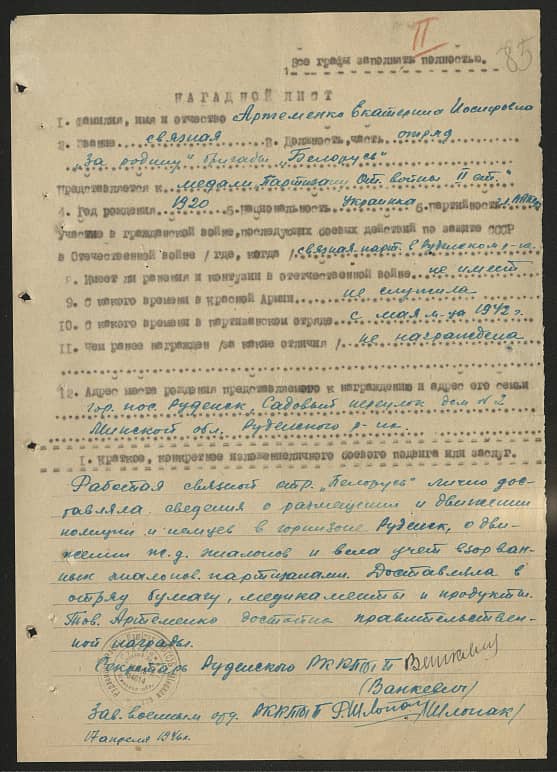 II
85
1 Все графы заполнять полностью.
НАГРАДНОЙ ЛИСТ
1. Фамилия, имя и отчество Артеменко Екатерина Иосифовна
2. Звание связная 3. Должность, часть отряд
"За родину" бригады "Беларусь"
представляется к медали "Партизану От. войны II ст."
4. Год рождения 1920 5. Национальность Украинка 6. Партийность чл. ВЛКСМ
Участие в гражданской войне, последующих боевых действий по защите СССР
в Отечественной войне /где, когда/ связная парт. в Руденском р-не
8. Имеет ли ранения и контузии в отечественной войне не имеет
9. С какого времени в Красной Армии не служила
10. С какого времени в партизанском отряде с мая м-ца 1942 г.
11. Чем ранее награжден /за какие отличия/ не награждена
12. Адрес места рождения представляемого к награждению и адрес его семьи
гор. пос. Руденск, Садовый переулок дом № 2
Минской обл. Руденского р-на.
I. Краткое, конкретное изложение личного боевого подвига или заслуг.
Работая связной отр. "Беларусь" лично дос-
тавляла сведения о размещении и движении
полиции и немцев в гарнизоне Руденск, о дви-
жении ж.д. эшалонов и вела учет взорван-
ных эшалонов партизанами. Доставляла в
отряд бумагу, медикаменты и продукты.
Тов. Артеменко достойна правительствен-
ной награды.
Секретарь Руденского РК КП(б)Б
(Ванкевич)
Зав. военным отд. РК КП(б)Б /Шлопак/
17 апреля 1946 г.